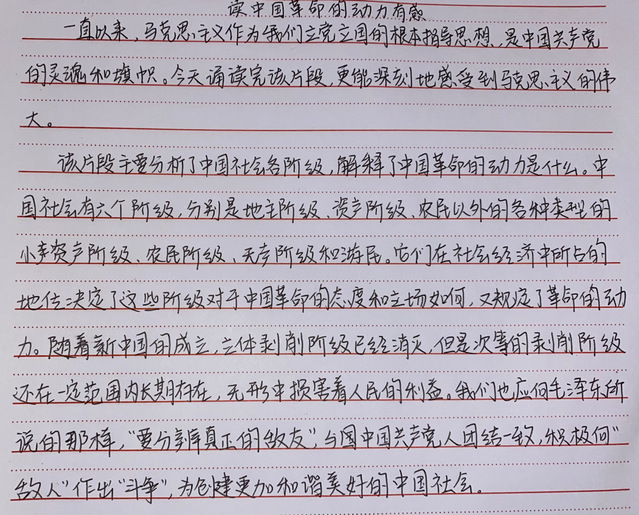 读中国革命的动力有感
一直以来,马克思主义作为我们立党立国的根本指导思想,是中国共产党
的灵魂和旗帜。今天诵读完该片段,更能深刻地感受到马克思主义的伟
大。
该片段主要分析了中国社会各阶级,解释了中国革命的动力是什么。中
国社会有六个阶级,分别是地主阶级、资产阶级、农民以外的各种类型的
小资产阶级、农民阶级、无产阶级和游民。它们在社会经济中所占的
地位决定了这些阶级对于中国革命的态度和立场如何,又规定了革命的动
力。随着新中国的成立,立体剥削阶级已经消灭,但是次等的剥削阶级
还在一定范围内长期存在,无形中损害着人民的利益。我们也应向毛泽东所
说的那样,“要分辨真正的敌友”,与国中国共产党人团结一致,积极向“
敌人”作出“斗争”,为创建更加和谐美好的中国社会。